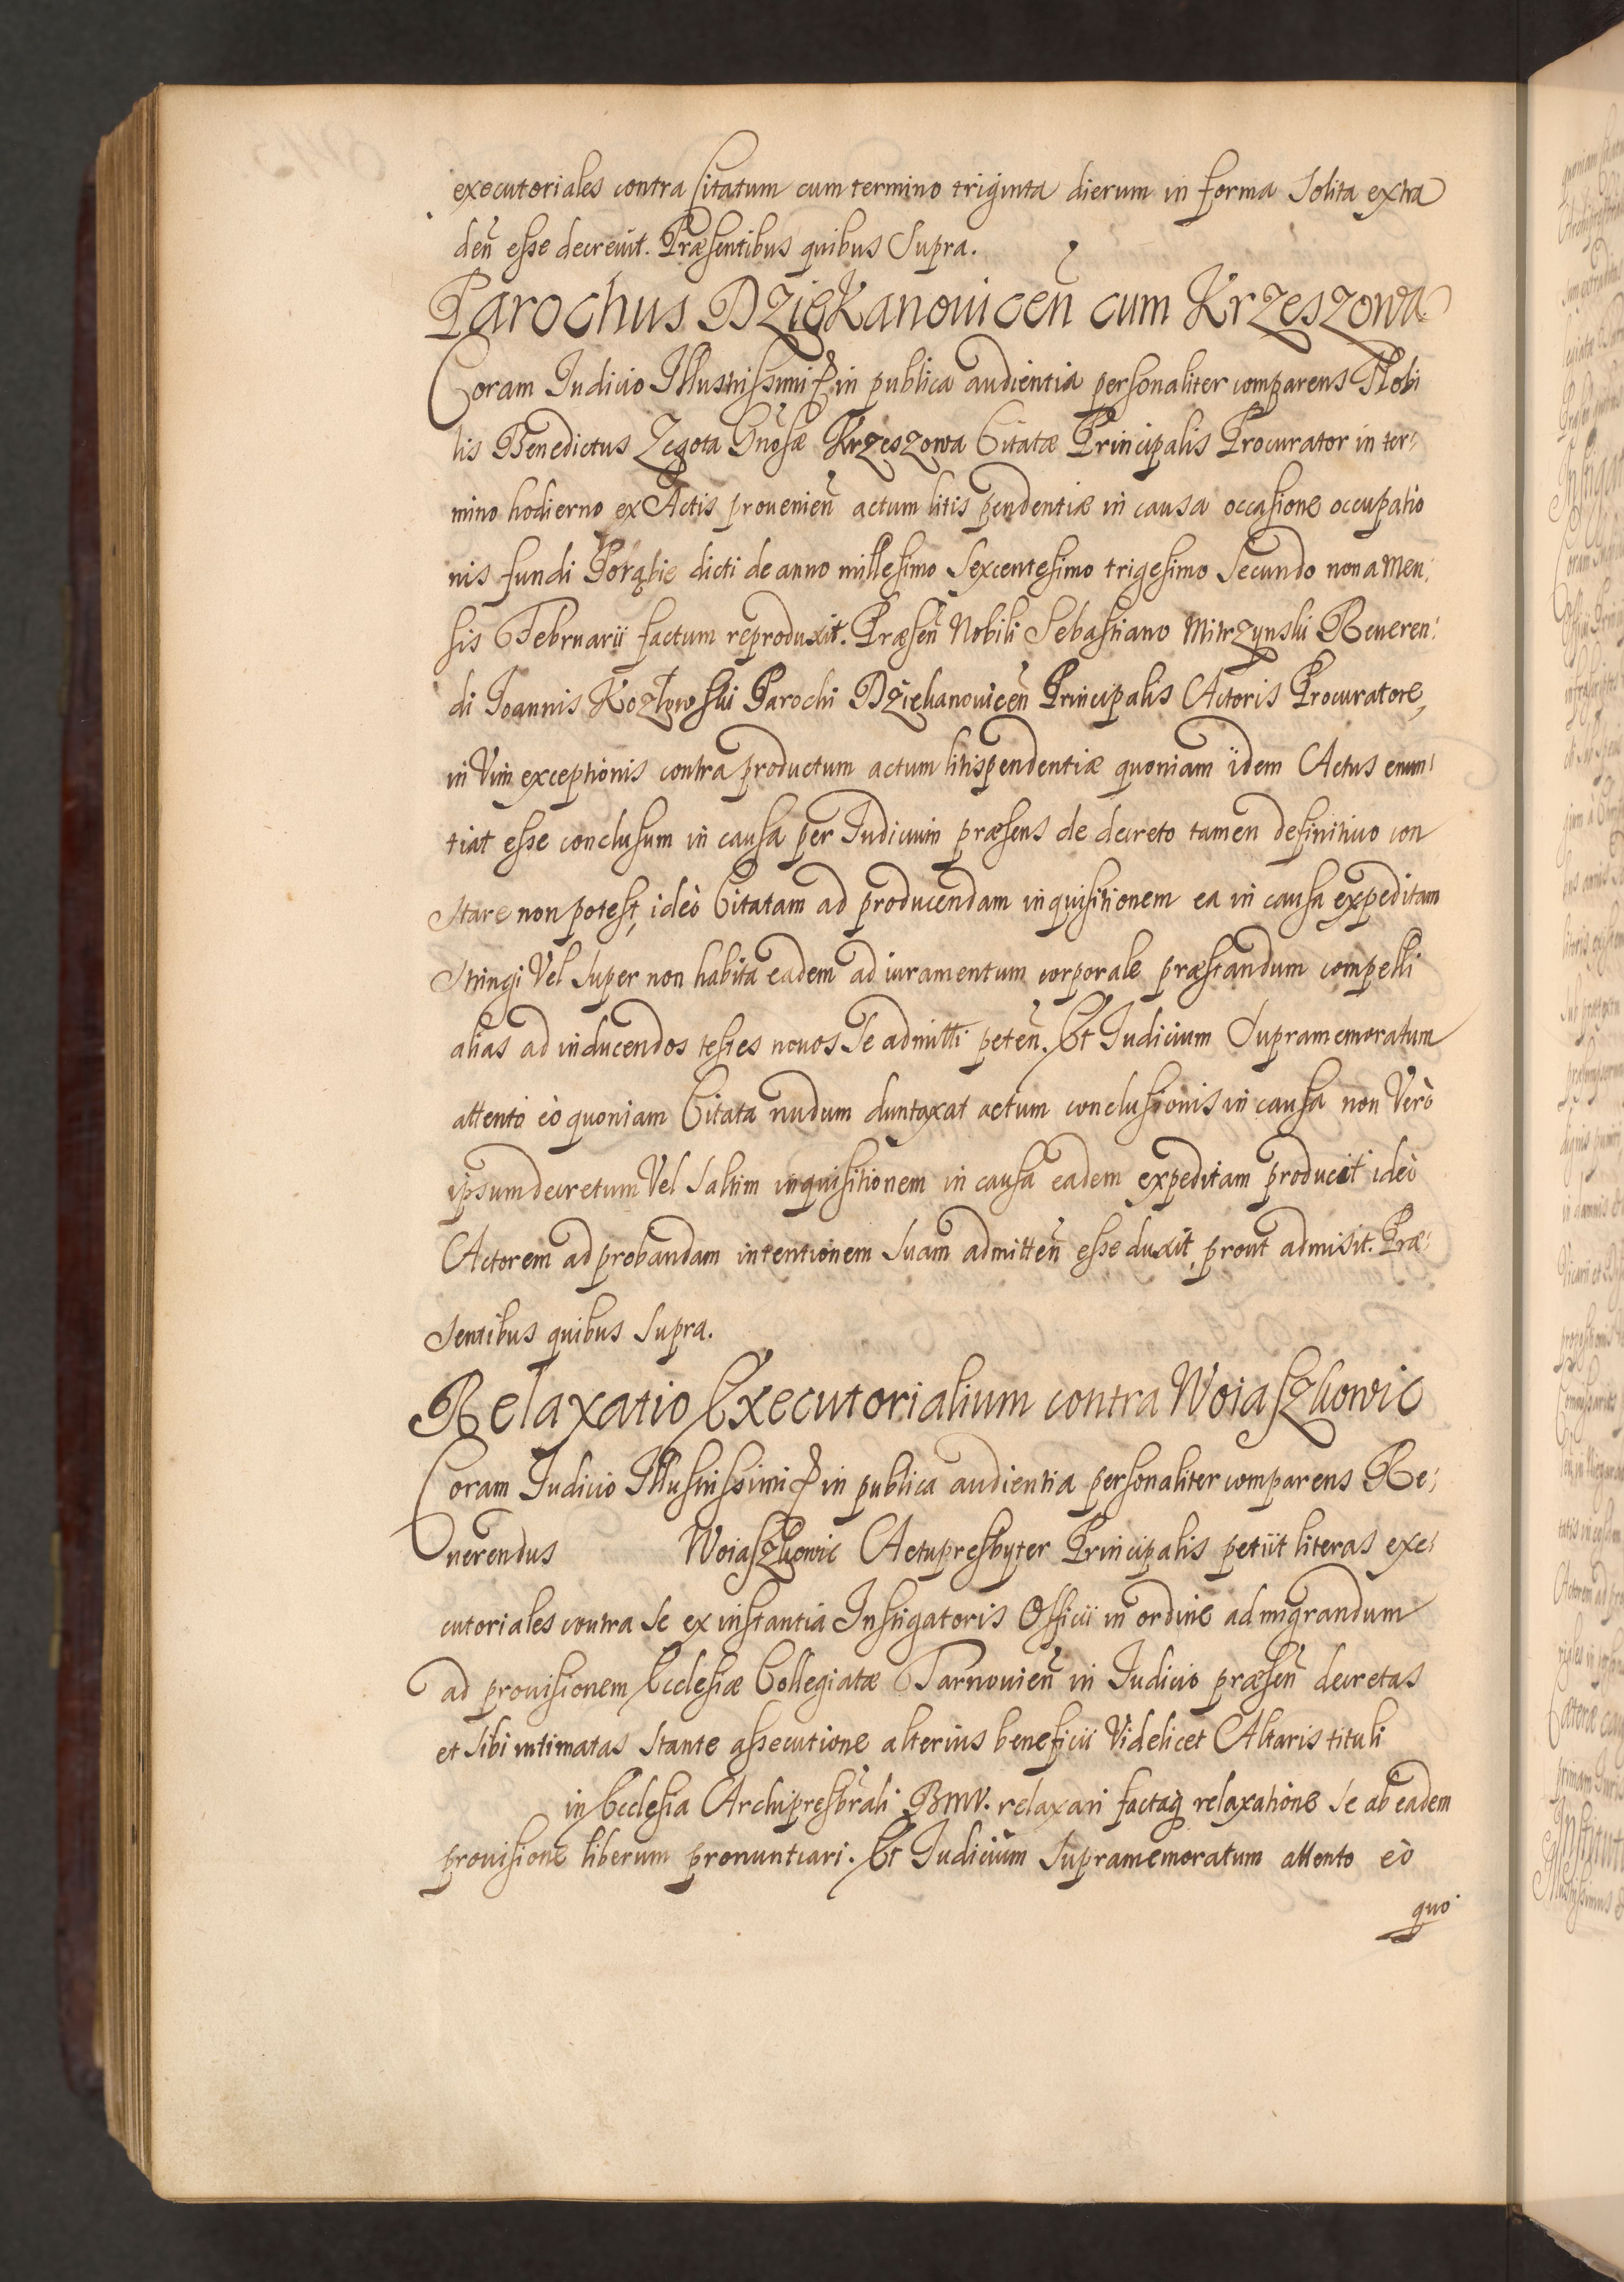 executoriales contra Citatum cum termino triginta dierum in forma Solita extra
deñ esse decreuit. Præsentibus quibus Supra.
Parochus Dziekanouiceñ cum Krzeszowa
Coram Iudicio Illustrissimi in publica audientia personaliter comparens Nobi
lis Benedictus Zegota Gnosæ Krzeszowa Citatæ Principalis Procurator in ter:
mino hodierno ex Actis prouenieñ actum litis pendentiæ in causa occasione occupatio
nis fundi Porąbie dicti de anno millesimo Sexcentesimo trigesimo Secundo nona Men:
sis Februarii factum reproduxit. Præseñ Nobili Sebastiano Mitrzynski Reueren:
di Ioannis Kozłowski Parochi Dziekanouiceñ Principalis Actoris Procuratore,
in Vim exceptionis contra productum actum litispendentiæ quoniam idem Actus enun:
tiat esse conclusum in causa per Iudicium præsens de decreto tamen definitiuo con
stare non potest, ideò Citatam ad producendam inquisitionem ea in causa expeditam
Stringi Vel Super non habita eadem ad iuramentum corporale præstandum compelli
alias ad inducendos testes nouos Se admitti peteñ. Et Iudicium Supramemoratum
attento eò quoniam Citata nudum duntaxat actum conclusionis in causa non Verò
ipsum decretum Vel Saltim inquisitionem in causa eadem expeditam producit ideò
Actorem ad probandam intentionem Suam admitteñ esse duxit, prout admisit. Præ:
Sentibus quibus Supra.
Relaxatio Executorialium contra Woiaszkowic
Coram Iudicio Illustrissimi in publica audientia personaliter comparens Re:
uerendus Woiaszkowic Actupresbyter Principalis petiit literas exe:
cutoriales contra Se ex instantia Instigatoris Officii in ordine ad migrandum
ad prouisionem Ecclesiæ Collegiatæ Tarnouieñ in Iudicio præseñ decretas
et Sibi intimatas Stante assecutione alterius beneficii Videlicet Altaris tituli
in Ecclesia Archipresbrali BMV. relaxari factaq relaxatione Se ab eadem
prouisione liberum pronuntiari. Et Iudicium Supramemoratum attento eò
quo